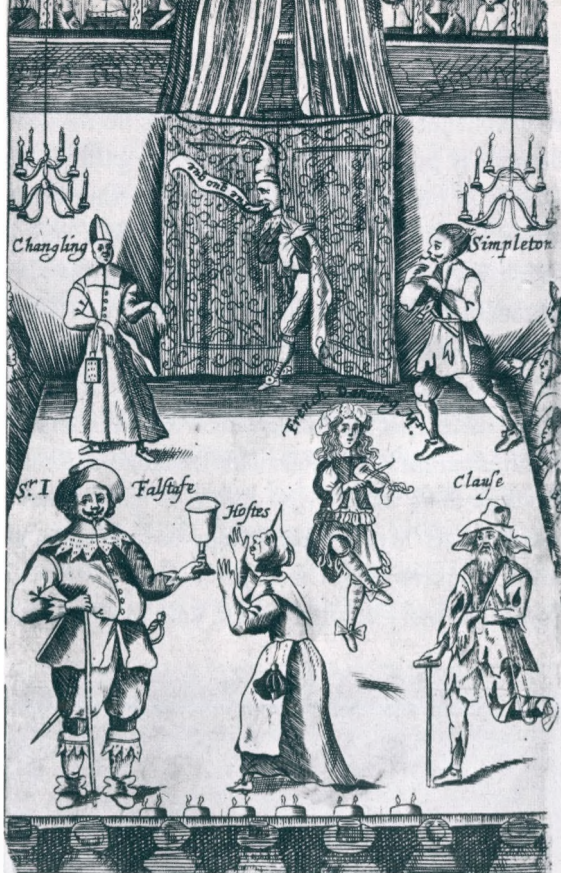 Tu quo que
Changling
Simpleton
French Dancing Mr.
Sr. I Falstafe
Hostes
Clause